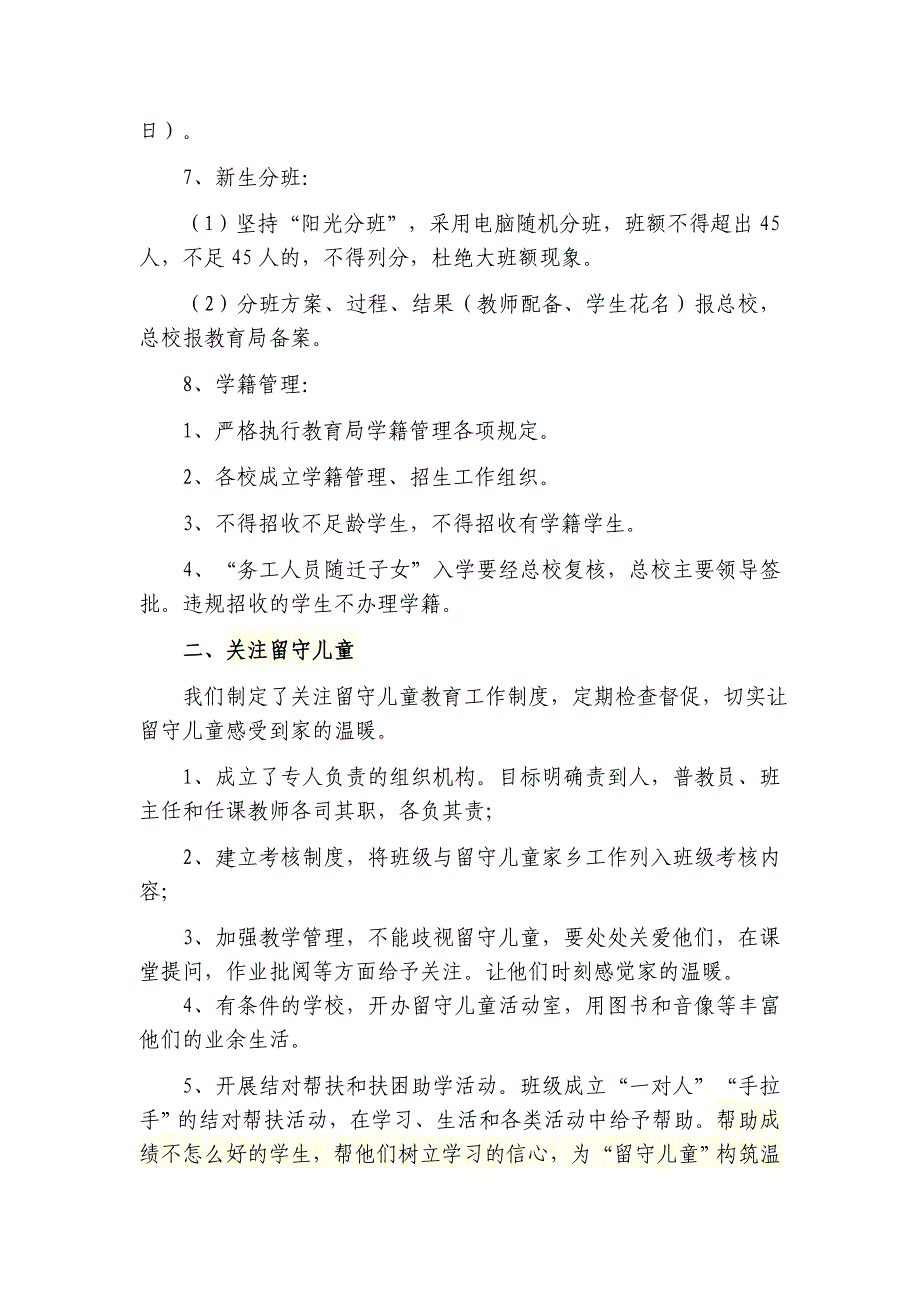 日）。
7、新生分班：
（1）坚持“阳光分班”，采用电脑随机分班，班额不得超出 45
人，不足 45 人的，不得列分，杜绝大班额现象。
（2）分班方案、过程、结果（教师配备、学生花名）报总校，
总校报教育局备案。
8、学籍管理：
1、严格执行教育局学籍管理各项规定。
2、各校成立学籍管理、招生工作组织。
3、不得招收不足龄学生，不得招收有学籍学生。
4、“务工人员随迁子女”入学要经总校复核，总校主要领导签
批。违规招收的学生不办理学籍。
二、关注留守儿童
我们制定了关注留守儿童教育工作制度，定期检查督促，切实让
留守儿童感受到家的温暖。
1、成立了专人负责的组织机构。目标明确责到人，普教员、班
主任和任课教师各司其职，各负其责；
2、建立考核制度，将班级与留守儿童家乡工作列入班级考核内
容；
3、加强教学管理，不能歧视留守儿童，要处处关爱他们，在课
堂提问，作业批阅等方面给予关注。让他们时刻感觉家的温暖。
4、有条件的学校，开办留守儿童活动室，用图书和音像等丰富
他们的业余生活。
5、开展结对帮扶和扶困助学活动。班级成立“一对人”“手拉
手”的结对帮扶活动，在学习、生活和各类活动中给予帮助。帮助成
绩不怎么好的学生，帮他们树立学习的信心，为“留守儿童”构筑温